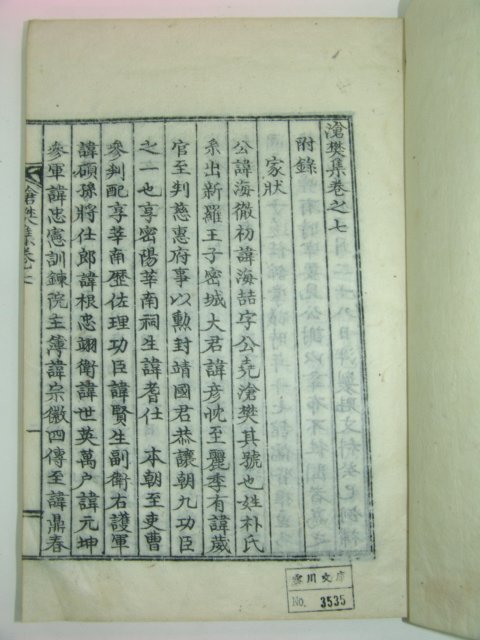 滄樊集卷之七
附錄
家狀
公諱海徹初諱海喆字公堯滄樊其號也姓朴氏
系出新羅王子密城大君諱彦忱至麗季有諱葳
官至判慈惠府事以勳封靖國君恭讓朝九功臣
之一也享密陽莘南祠生諱耆仕 本朝至吏曹
參判配享莘南歷佐理功臣諱賢生副衛右護軍
諱碩孫將仕郎諱根忠翊衛諱世英萬户諱元坤
參軍諱忠憲訓鍊院主簿諱宗徽四傳至諱鼎春
滄樊集卷七
一
雲川文庫
No. 3535